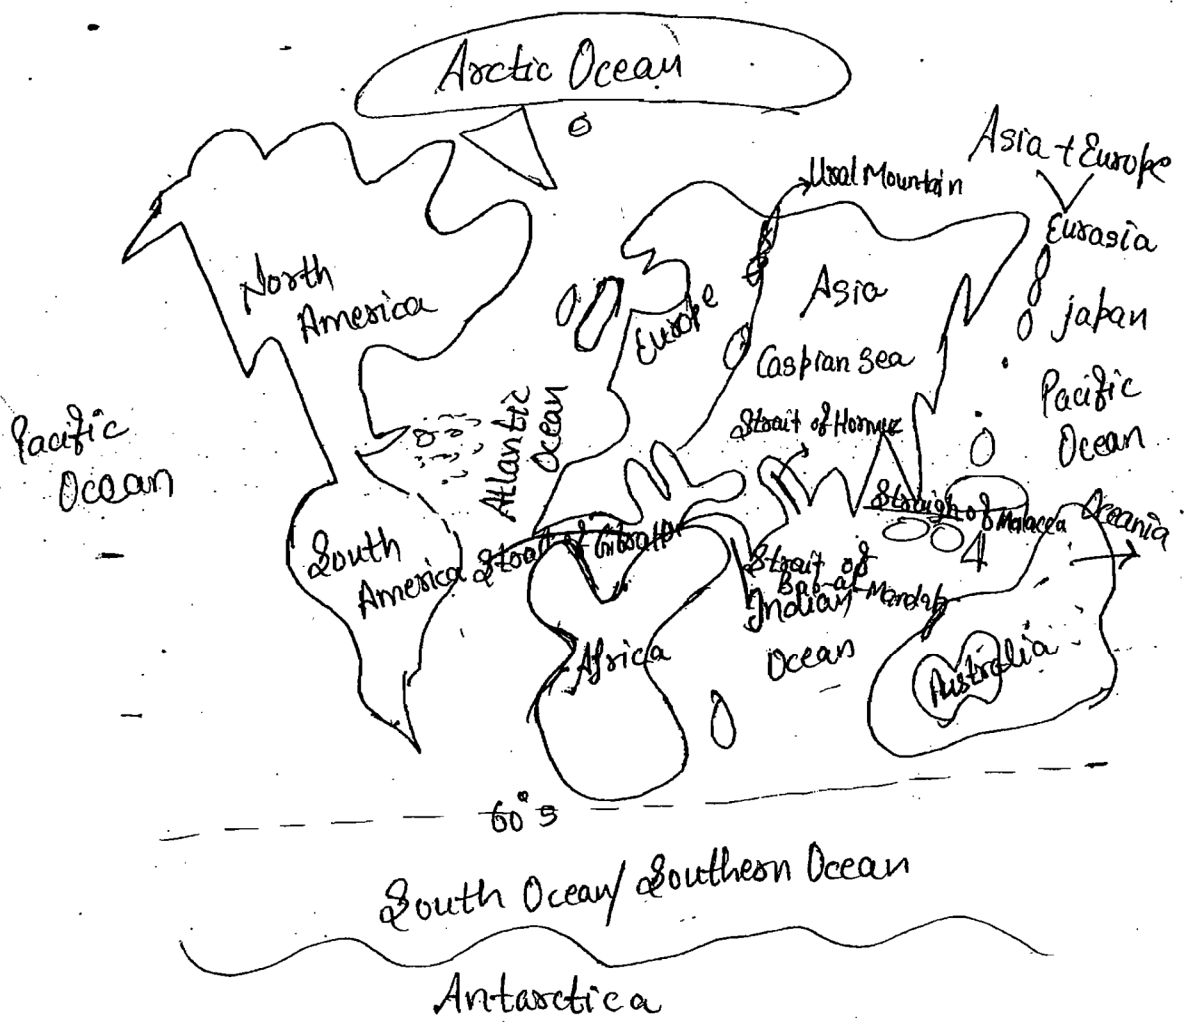 Arctic Ocean
Asia + Europe
Ural Mountain
Eurasia
North
America
Asia
Europe
japan
Caspian Sea
Pacific
Ocean
Pacific
Ocean
Atlantic
Ocean
Strait of Hormuz
Straigh of Malacca
Oceania
South
America
Strait of Gibralter
Strait of
Bab-al-Mandab
Indian
Ocean
Africa
Australia
60°S
South Ocean/Southern Ocean
Antarctica